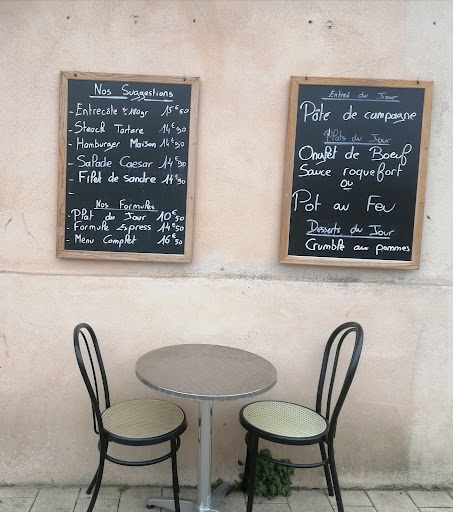 Nos Suggestions
- Entrecôte ± 180gr 15€50
- Steack Tartare 14€90
- Hamburger Maison 14€90
- Salade Caesar 14€90
- Filet de sandre 14€90
-
Nos Formules
- Plat du Jour 10€50
- Formule Express 14€50
- Menu Complet 16€50
Entrée du Jour
Pâte de campagne
Plats du Jour
Onglet de Boeuf
Sauce roquefort
ou
Pot au Feu
Desserts du Jour
Crumble aux pommes